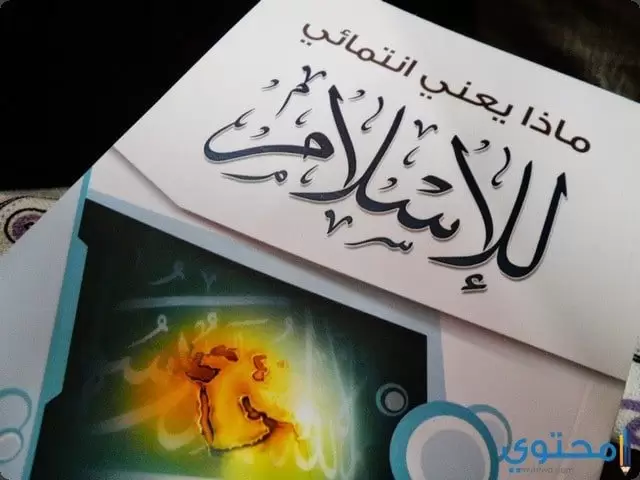 ماذا يعني انتمائي
للإسلام
محتوي